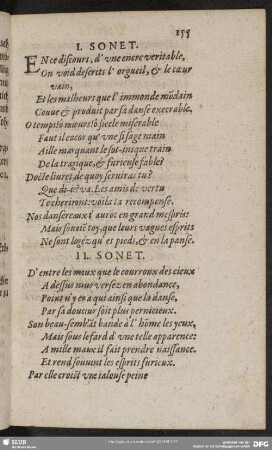 155
I. SONET.
EN ce discours, d'vne encre veritable,
On void descrits l'orgueil, & le cœur
vain,
Et les malheurs que l'immonde mõdain
Couue & produit par sa danse execrable.
O temps! ô mœurs! ô siecle miserable
Faut il encor qu'vne si sage main
Aille marquant le sot-inique train
De la tragique, & furieuse fable?
Docte liuret de quoy seruiras tu?
Que dis-ie? va. Les amis de vertu
Te cheriront: voila ta recompense.
Nos dansereaux t'auront en grand mespris
Mais font ie toy, que leurs vagues esprits
Ne sont logéz qu'és pieds, & en la panse.
II. SONET.
D'entre les maux que le courroux des cieux
A dessus nous versez en abondance,
Point n'y en a qui ainsi que la danse,
Par sa douceur soit plus pernicieux.
Son beau-semblãt bande à l'hõme les yeux,
Mais sous le fard d'vne telle apparence:
A mille maux il fait prendre naissance.
Et rend souuent les esprits furieux.
Par elle croist vne ialouse peine
SLUB
DFG